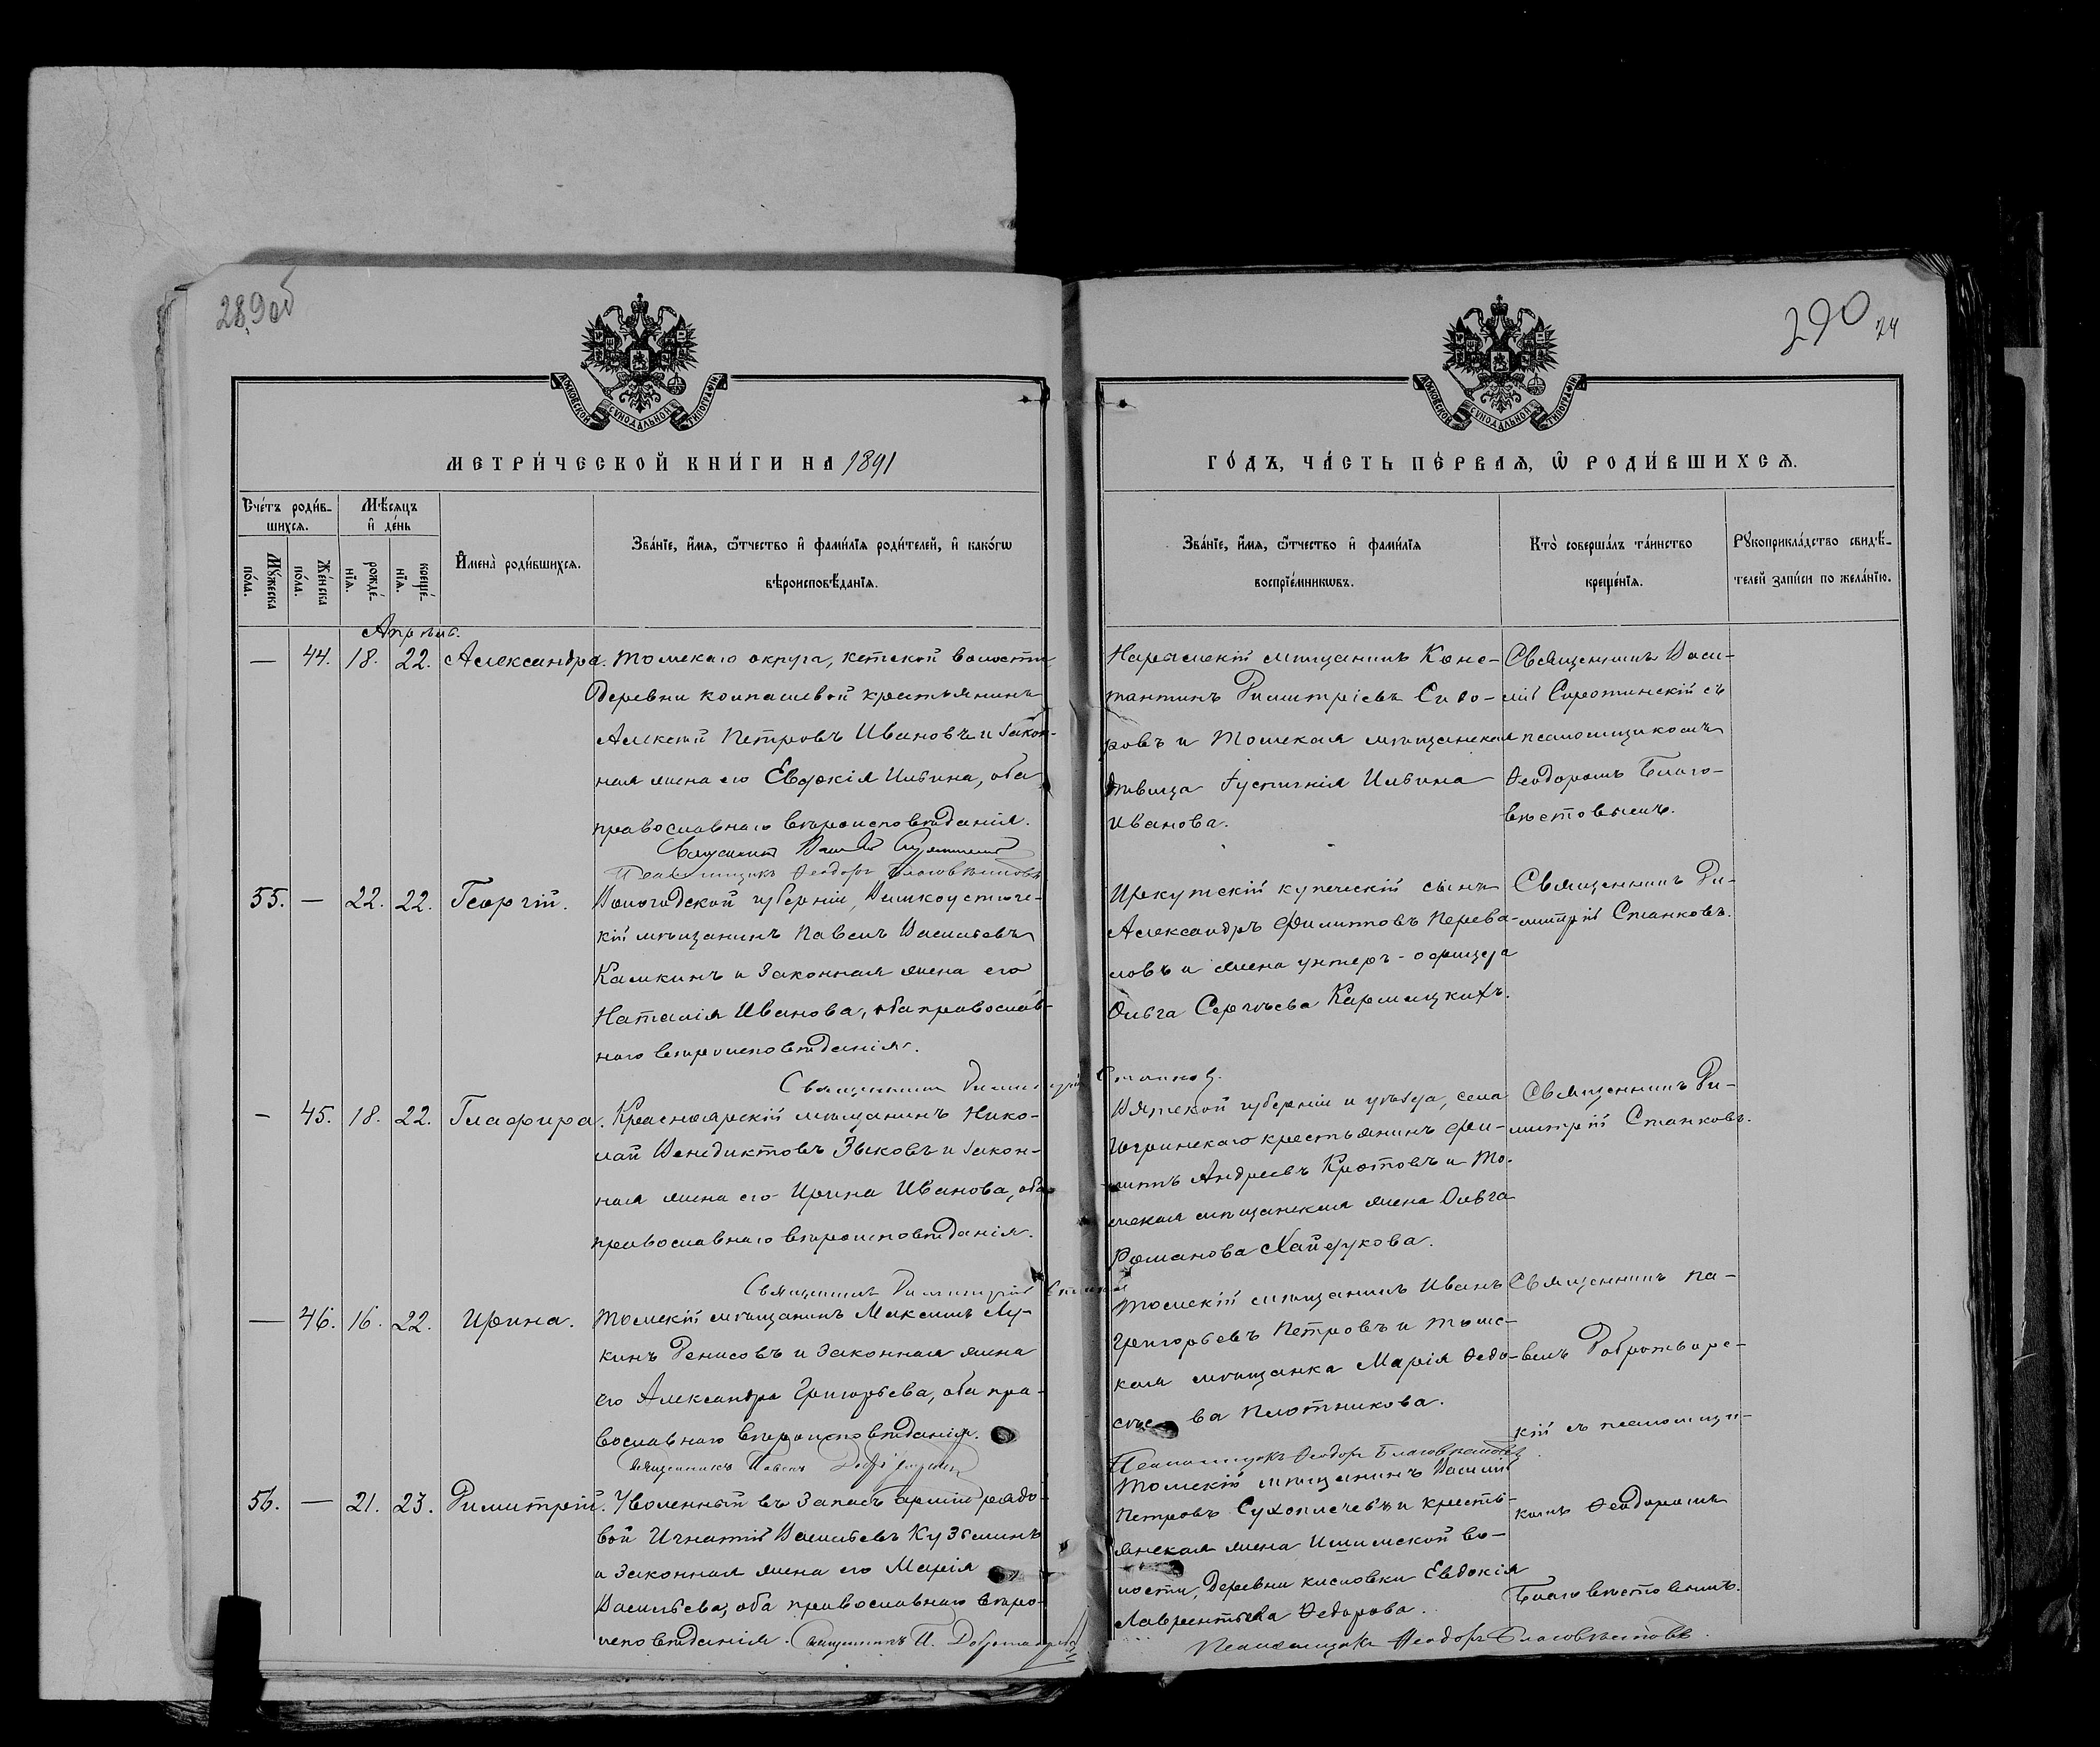 289об
290
24
МОСКОВСКОЙ СѴНОДАЛЬНОЙ ТИПОГРАФІИ
МОСКОВСКОЙ СѴНОДАЛЬНОЙ ТИПОГРАФІИ
МЕТРИ́ЧЕСКОЙ КНИ́ГИ НА 1891
ГО́ДЪ, ЧА́СТЬ ПЕ́РВАѦ, Ѡ РОДИ́ВШИХСѦ.
Сче́тъ роди́в-
шихсѧ.
Мѣ́сѧцъ
и҆ де́нь
Мꙋ́жеска
по́ла.
Же́нска
по́ла.
рожде́-
нїѧ.
креще́-
нїѧ.
И҆мена̀ роди́вшихсѧ.
Зва́нїе, и҆́мѧ, ѻ҆́тчество и҆ фами́лїѧ роди́телей, и҆ како́гѡ
вѣроисповѣ́данїѧ.
Зва́нїе, и҆́мѧ, ѻ҆́тчество и҆ фами́лїѧ
воспрїе́мникѡвъ.
Кто̀ соверша́лъ та́инство
креще́нїѧ.
Рꙋкоприкла́дство свидѣ́-
телей за́писи по жела́нїю.
Апрѣль.
— 44. 18. 22. Александра. Томскаго округа, кетской волости
деревни колпашевой крестьянинъ
Алексѣй Петровъ Ивановъ и закон-
ная жена его Евдокія Ильина, оба
православнаго вѣроисповѣданія.
Священникъ Василій Сиротинскій
Псаломщикъ Ѳеодоръ Благовѣстовъ
Нарымскій мѣщанинъ Конс-
тантинъ Димитріевъ Сидо-
ровъ и Томская мѣщанская
дѣвица Ильина
Иванова.
Священникъ Васи-
лій Сиротинскій съ
псаломщикомъ
Ѳеодоромъ Благо-
вѣстовымъ.
55. — 22. 22. Георгій. Вологодской губерніи, Великоустюгс-
кій мѣщанинъ Павелъ Васильевъ
Камкинъ и законная жена его
Наталія Иванова, оба православ-
наго вѣроисповѣданія.
Священникъ Димитрій Станковъ.
Иркутскій купеческій сынъ
Александръ Филиповъ Перева-
ловъ и жена унтеръ-офицера
Ольга Сергѣева Кармицкихъ.
Священникъ Ди-
митрій Станковъ.
— 45. 18. 22. Глафира. Красноярскій мѣщанинъ Нико-
лай Венедиктовъ Зыковъ и закон-
ная жена его Ирина Иванова, оба
православнаго вѣроисповѣданія.
Священникъ Димитрій Станковъ
Вятской губерніи и уѣзда, села
крестьянинъ Фи-
липъ Андреевъ Кротовъ и То-
мская мѣщанская жена Ольга
Романова Хайдукова.
Священникъ Ди-
митрій Станковъ.
— 46. 16. 22. Ирина. Томскій мѣщанинъ Максимъ Лу-
кинъ Денисовъ и законная жена
его Александра Григорьева, оба пра-
вославнаго вѣроисповѣданія.
Священникъ Павелъ
Томскій мѣщанинъ Иванъ
Григорьевъ Петровъ и томс-
кая мѣщанка Марія Ѳедо-
ва Плотникова.
Псаломщикъ Ѳеодоръ Благовѣстовъ
Священникъ Па-
велъ Добротворс-
кій съ псаломщи-
комъ Ѳеодоромъ
Благовѣстовымъ.
56. — 21. 23. Димитрій. Уволенный въ запасъ арміи рядо-
вой Игнатій Васильевъ Кузьминъ
и законная жена его Марія
Васильева, оба православнаго вѣро-
исповѣданія. Священникъ П. Добротворскій
Томскій мѣщанинъ Василій
Петровъ Сухоплечевъ и кресть-
янская жена Ишимской во-
лости, деревни кисловки Евдокія
Лаврентьева Ѳедорова.
Псаломщикъ Ѳеодоръ Благовѣстовъ.